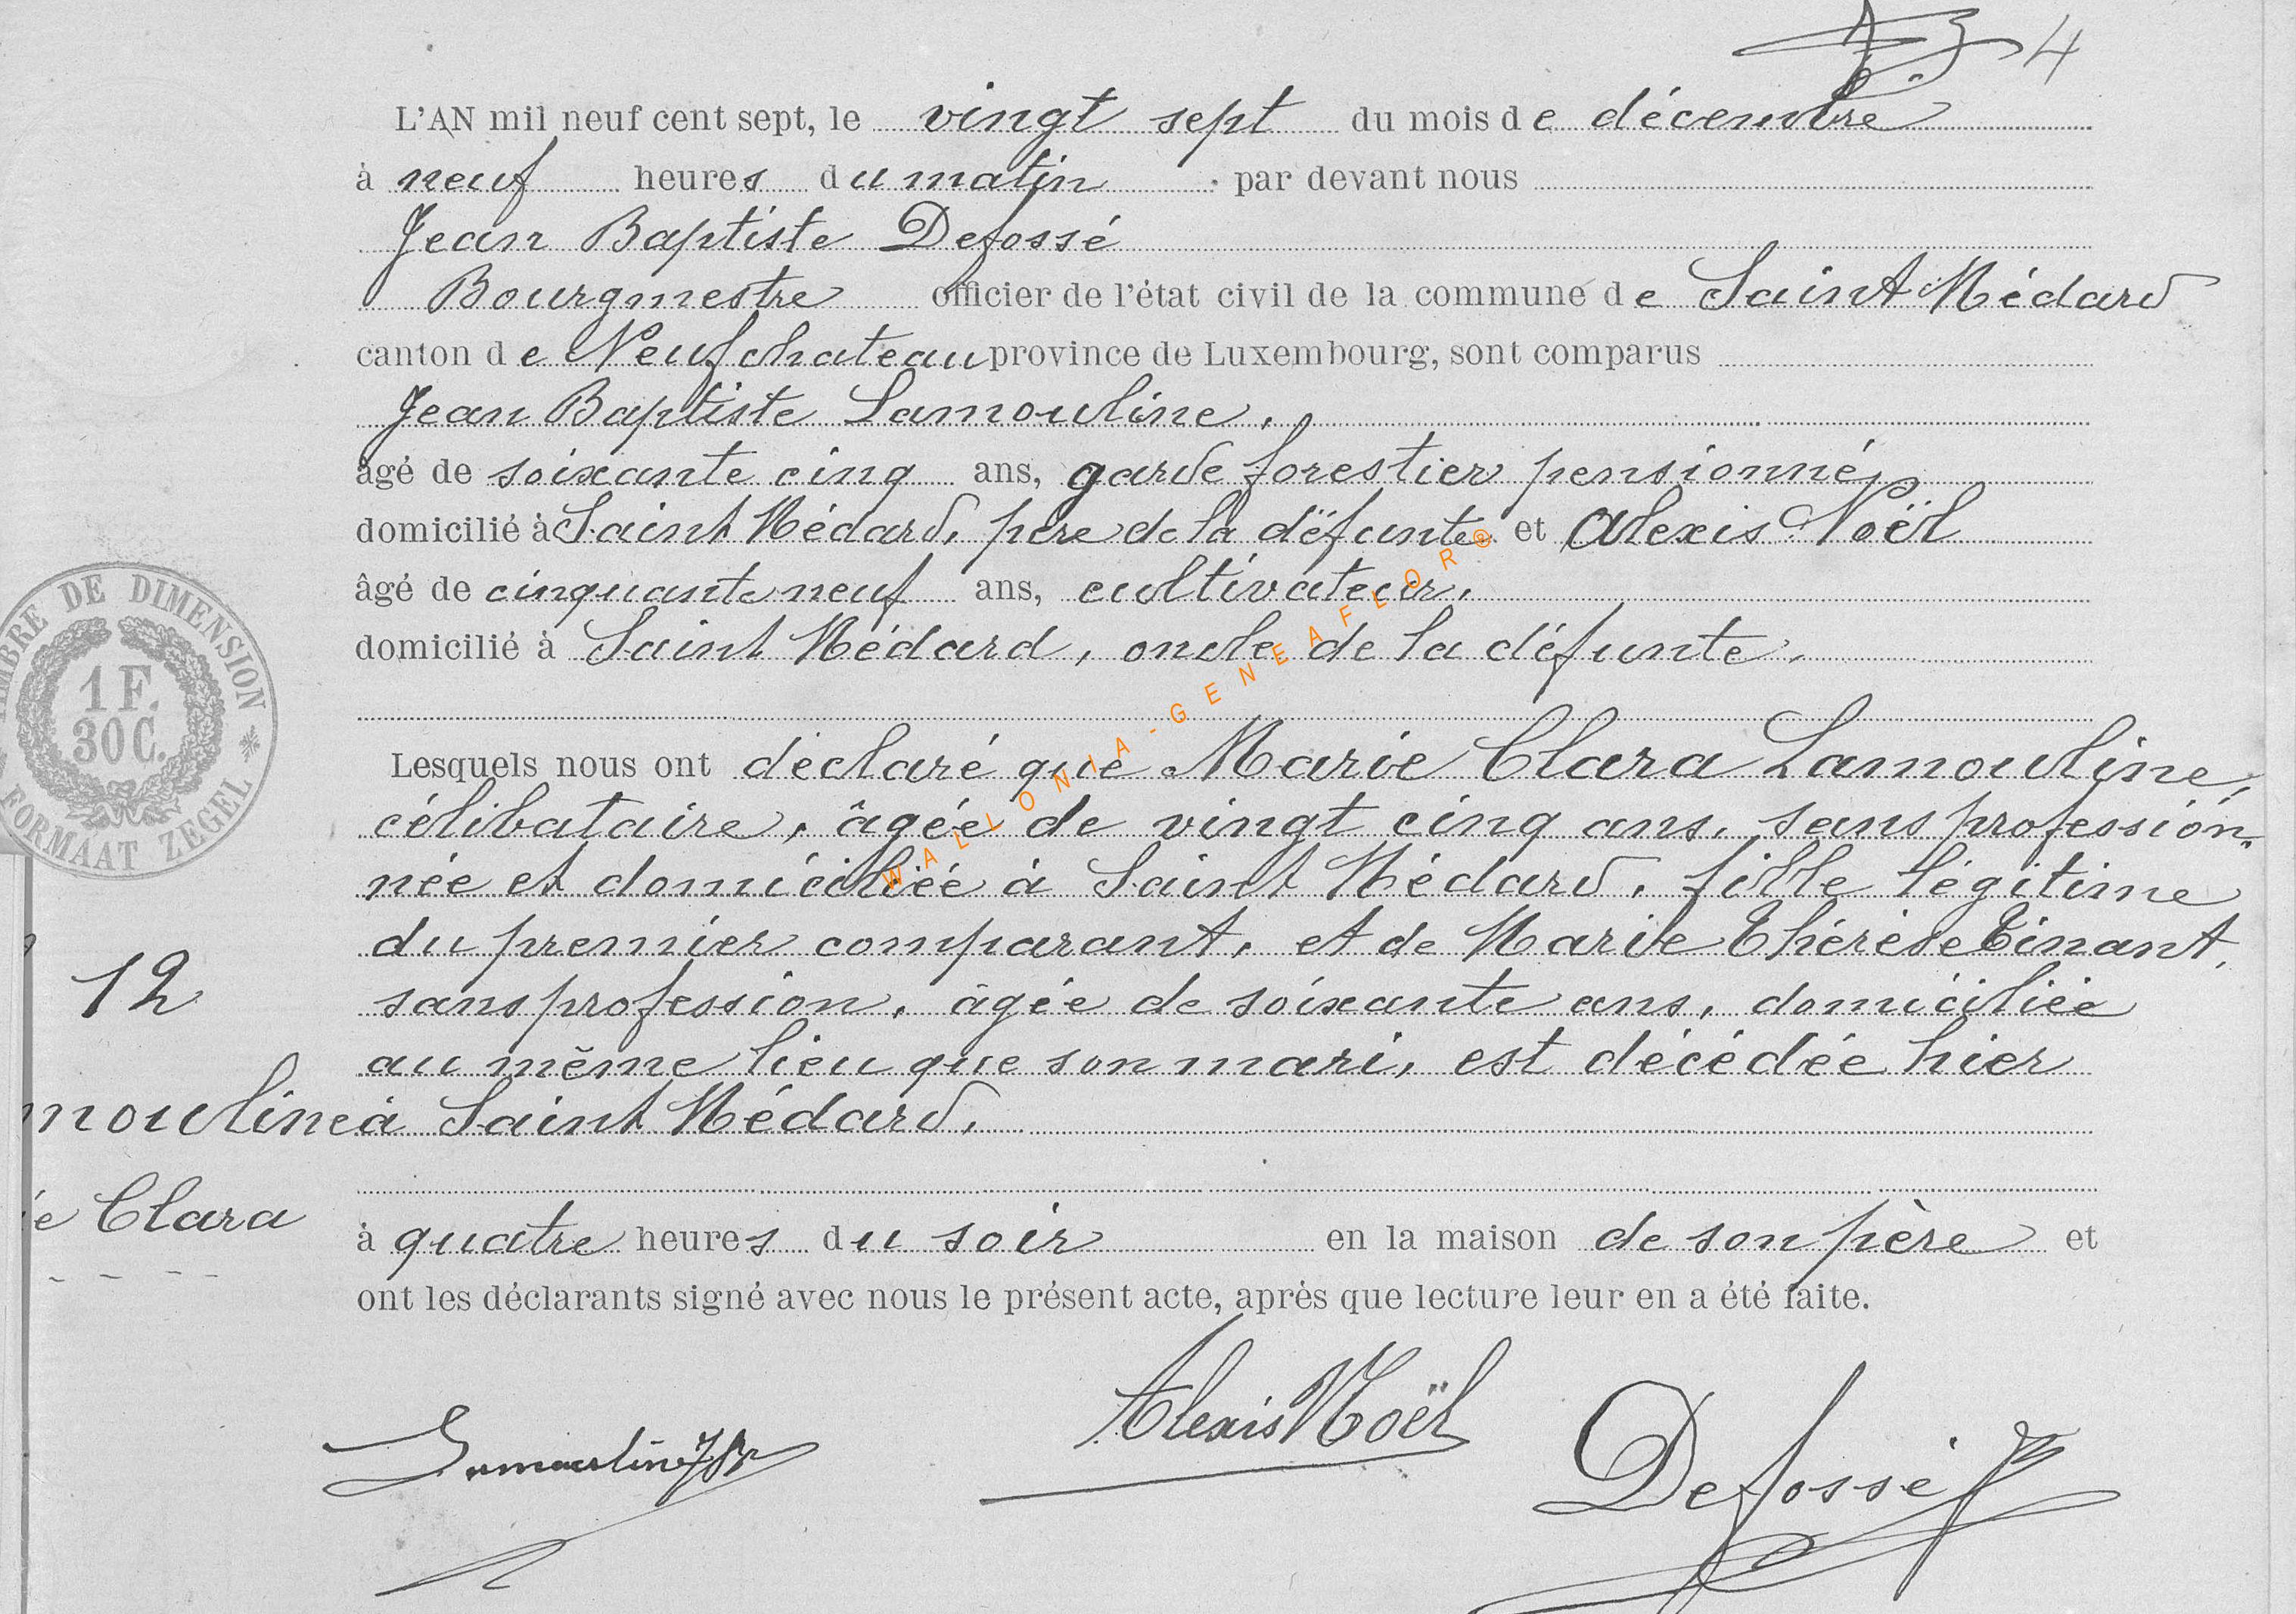 4
L'AN mil neuf cent sept, le vingt sept du mois de décembre
à neuf heures du matin par devant nous
Jean Baptiste Defossé
Bourgmestre officier de l'état civil de la commune de Saint Médard
canton de Neufchateau province de Luxembourg, sont comparus
Jean Baptiste Lamouline,
âgé de soixante cinq ans, garde forestier pensionné,
domicilié à Saint Médard, père de la défunte et Alexis Noël
âgé de cinquante neuf ans, cultivateur,
domicilié à Saint Médard, oncle de la défunte,
Lesquels nous ont déclaré que Marie Clara Lamouline,
célibataire, âgée de vingt cinq ans, sans profession,
née et domiciliée à Saint Médard, fille légitime
du premier comparant, et de Marie Thérèse Tinant,
sans profession, âgée de soixante ans, domiciliée
au même lieu que son mari, est décédée hier
à Saint Médard,
à quatre heures du soir en la maison de son père et
ont les déclarants signé avec nous le présent acte, après que lecture leur en a été faite.
Lamouline JB
Alexis Noël
Defossé
12
mouline
ie Clara
TIMBRE DE DIMENSION
1 F.
30 C.
FORMAAT ZEGEL
WALLONIA-GENEAFLOR®